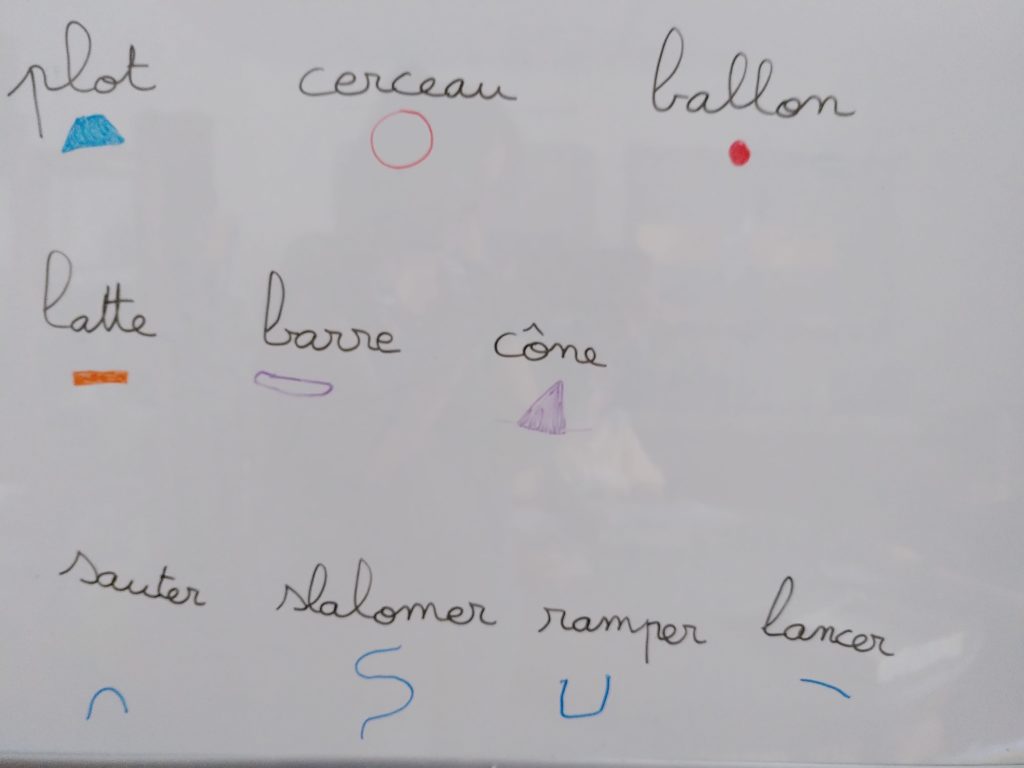 plot cerceau ballon
latte barre cône
sauter slalomer ramper lancer